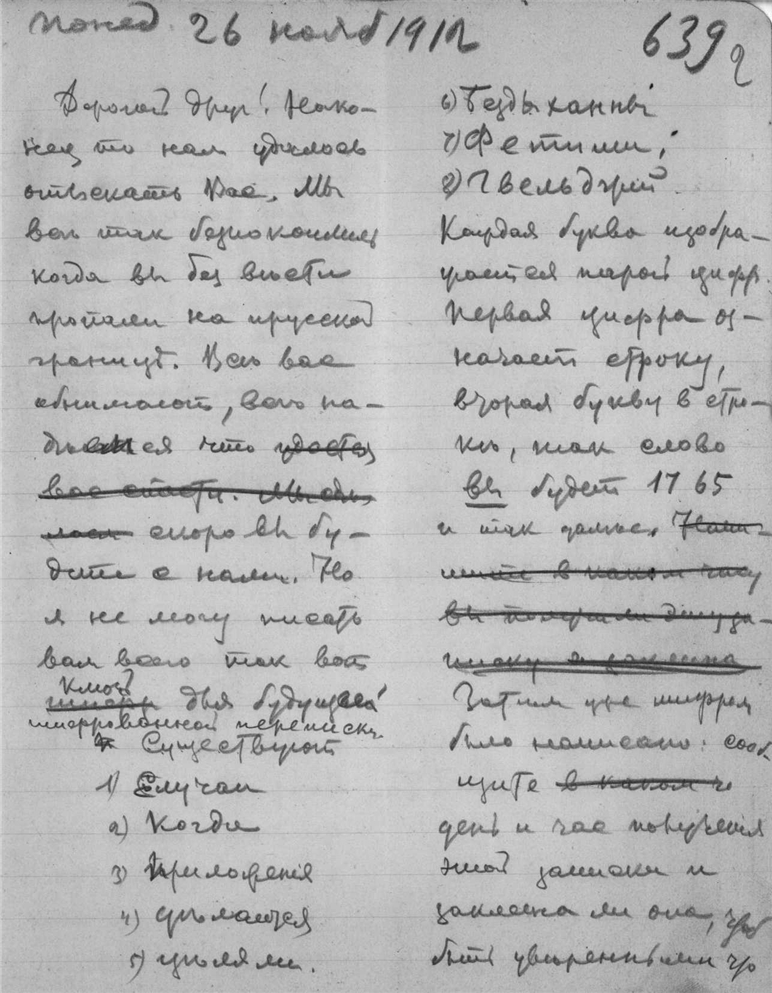 понед. 26 нояб 1912
639
Дорогой друг! Нако-
нец то нам удалось
отыскать Вас. Мы
все так безпокоились
когда вы без вести
пропали на прусской
границѣ. Всѣ вас
обнимают, всѣ на-
дѣемся что удастся
вас спасти. Мы
скоро вы бу-
дете с нами. Но
я не могу писать
вам всего так вот
Ключ
шифр для будущей
шифрованной переписки.
Существуют
1) Случаи
2) Когда
3) Приложенiя
4) дѣлаются
5) цѣлями.
6) Бездыханнѣ
7) Фетиши;
8) Гвельдрей
Каждая буква изобра-
жается парой цифр.
Первая цифра оз-
начает строку,
вторая букву в стро-
кѣ, так слово
вы будет 17 65
и так далѣе. Напи-
шите в каком часу
вы получили эту за-
писку и заклеена
Затѣм уже шифром
было написано: сооб-
щите в каком ч
день и час полученiя
этой записки и
заклеена ли она, чтоб
быть увѣренными что